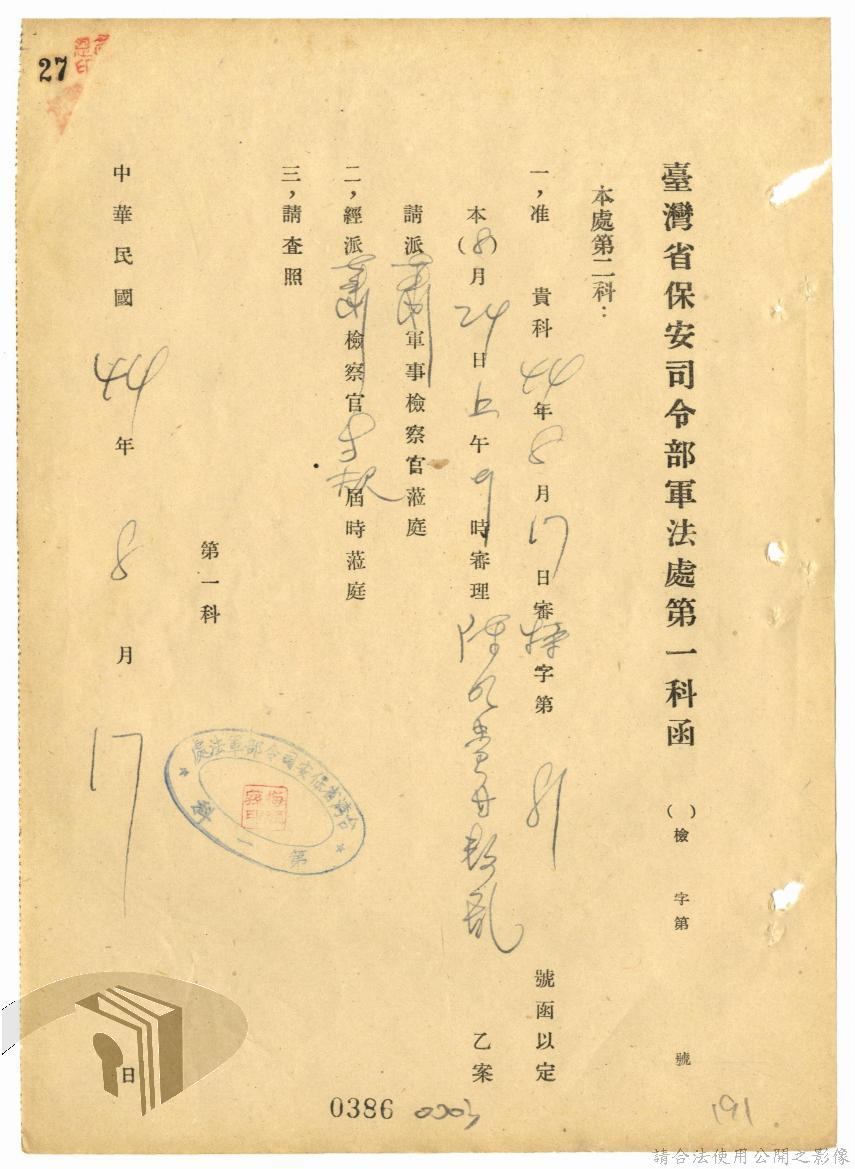 臺灣省保安司令部軍法處第一科函 ( )檢 字第 號
本處第二科：
一，准 貴科44年8月17日審 字第 81 號函以定
本(8)月24日上午9時審理陳 等叛亂 乙案
請派蕭軍事檢察官蒞庭
二，經派蕭檢察官 屆時蒞庭
三，請查照
第一科
中華民國 44 年 8 月 17 日
台灣省保安司令部軍法處
第一科
27
0386
191
請合法使用公開之影像